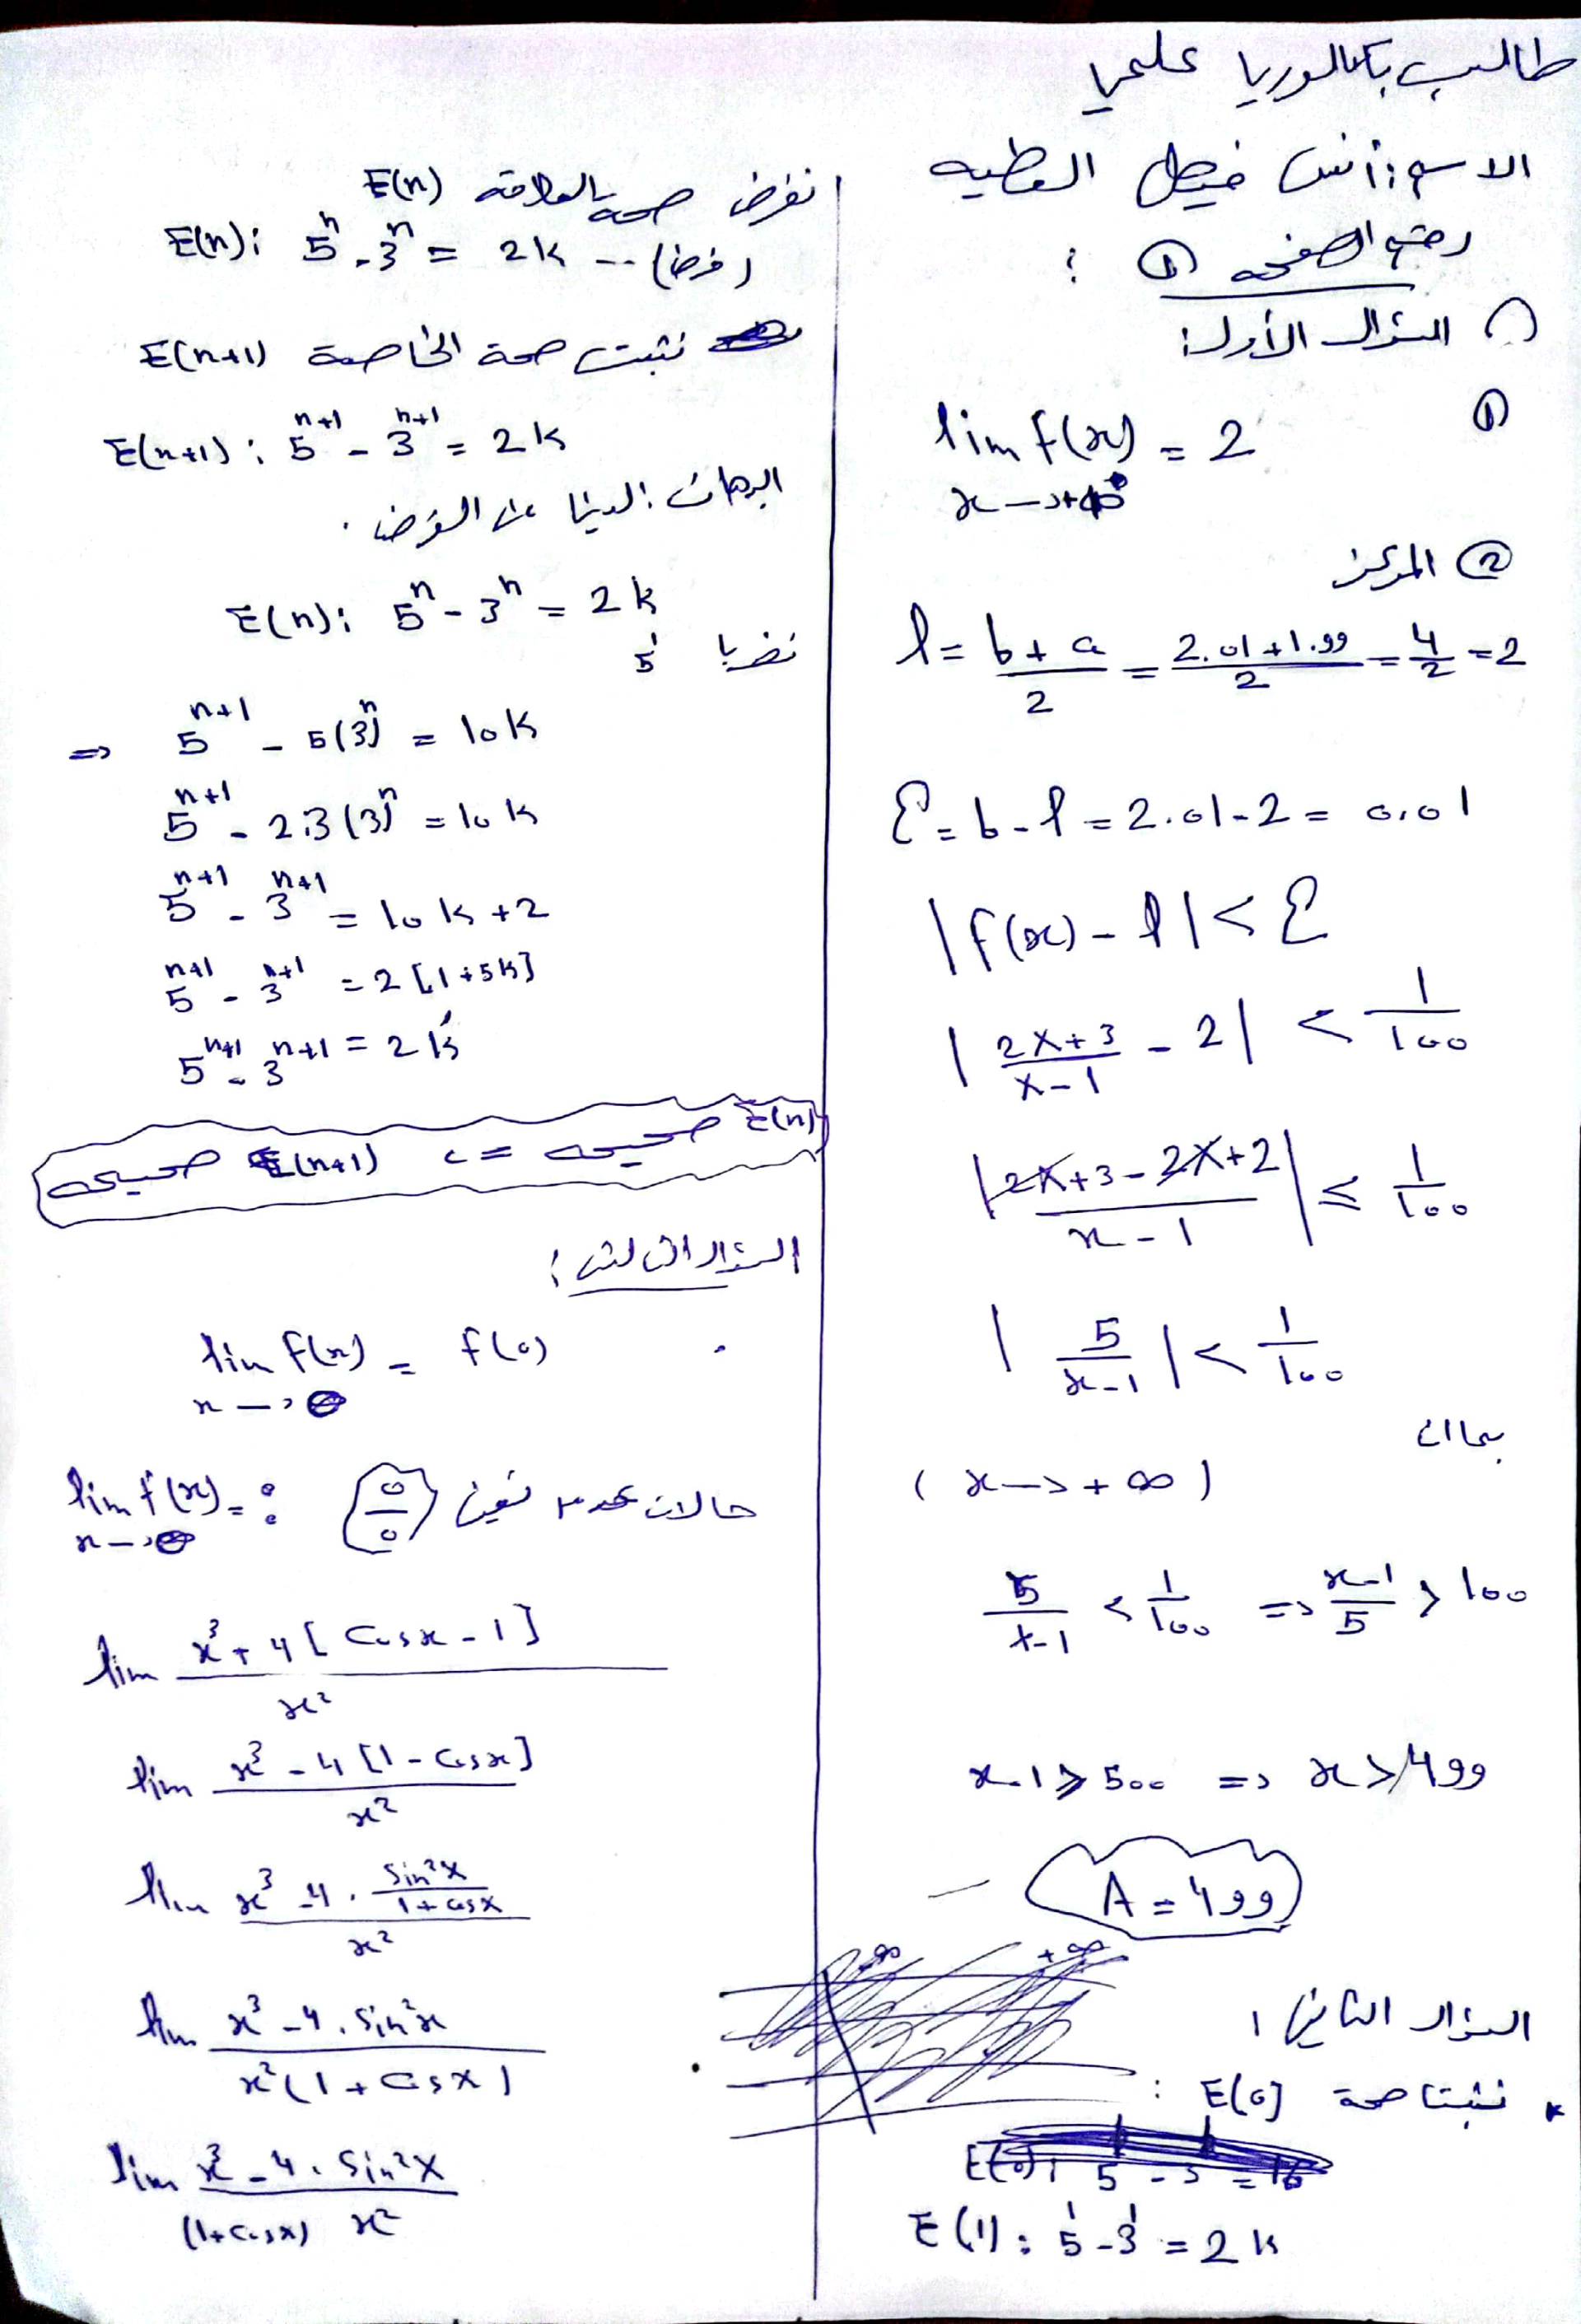 طالب بكالوريا علمي
الاسم: أنس فيصل العطيه
رقم الصفحه ①:
السؤال الأول:
①
lim f(x) = 2
x→+∞
② المركز
l = b+a/2 = 2.01+1.99/2 = 4/2 = 2
ε = b-l = 2.01-2 = 0,01
|f(x) - l| < ε
|2x+3/x-1 - 2| < 1/100
|2x+3-2x+2/x-1| ≤ 1/100
|5/x-1| < 1/100
بما ان
(x→+∞)
5/x-1 < 1/100 => x-1/5 > 100
x-1 > 500 => x > 499
A = 499
-∞ +∞
السؤال الثاني:
* نثبت صحة E(0):
E(0): 5 - 3 = 16
E(1): 5¹-3¹ = 2k
نفرض صحه العلاقة E(n)
E(n): 5ⁿ-3ⁿ = 2k -- (فرضا)
نثبت صحة الخاصة E(n+1)
E(n+1): 5ⁿ⁺¹ - 3ⁿ⁺¹ = 2k
البرهان: لدينا من الفرض.
E(n): 5ⁿ - 3ⁿ = 2k
نضرب 5
=> 5ⁿ⁺¹ - 5(3)ⁿ = 10k
5ⁿ⁺¹ - 2.3(3)ⁿ = 10k
5ⁿ⁺¹ - 3ⁿ⁺¹ = 10k+2
5ⁿ⁺¹ - 3ⁿ⁺¹ = 2[1+5k]
5ⁿ⁺¹ - 3ⁿ⁺¹ = 2k'
E(n) صحيحه <= E(n+1) صحيحه
السؤال الثالث:
lim f(x) = f(0)
x→0
lim f(x) = : 0/0 حالات عدم تعين
x→0
lim x³+4[cosx-1]/x²
lim x³-4[1-cosx]/x²
lim x³-4.sin²x/1+cosx/x²
lim x³-4.sin²x/x²(1+cosx)
lim x³-4.sin²x/(1+cosx) x²